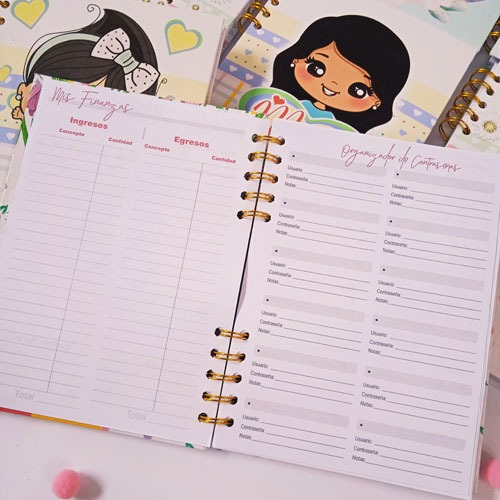 Mis Finanzas
Ingresos Egresos
Concepto Cantidad Concepto Cantidad
Total Total
Organizador de Contraseñas
Usuario:
Contraseña:
Notas:
Usuario:
Contraseña:
Notas:
Usuario:
Contraseña:
Notas:
Usuario:
Contraseña:
Notas:
Usuario:
Contraseña:
Notas:
Usuario:
Contraseña:
Notas:
Usuario:
Contraseña:
Notas:
Usuario:
Contraseña:
Notas:
Usuario:
Contraseña:
Notas:
Usuario:
Contraseña:
Notas:
Usuario:
Contraseña:
Notas:
Usuario:
Contraseña:
Notas: